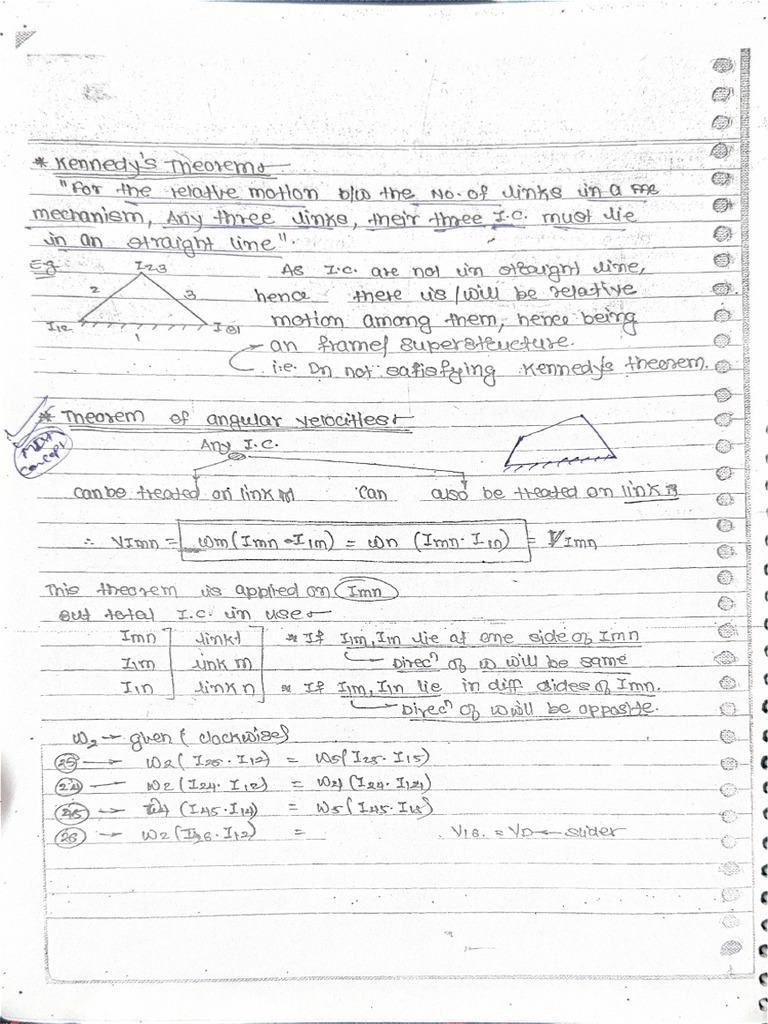 * Kennedy's Theorem
"For the relative motion b/w the No. of links in a
mechanism, Any three links, their three I.C. must lie
in an straight line".
Eg
I23
2
3
I12
1
As I.C. are not in straight line,
hence there is/will be relative
motion among them, hence being
an frame/superstructure.
i.e. not satisfying Kennedy's theorem.
* Theorem of angular velocities
MDH
Concept
Any I.C.
can be treated on link m can also be treated on link n
∴ VImn = ωm(Imn - I1m) = ωn (Imn · I1n) = VImn
This theorem is applied on Imn
But total I.C. in use
Imn link 1 * If I1m, Im lie at one side of Imn
I1m link m Direcⁿ of ω will be same
I1n link n * If I1m, I1n lie in diff sides of Imn.
Direcⁿ of ω will be opposite.
ω2 → given (clockwise)
25 → ω2(I25 · I12) = ω5(I25 · I15)
24 — ω2(I24 · I12) = ω4(I24 · I14)
45 → ω4 (I45 · I14) = ω5(I45 · I15)
26 → ω2(I26 · I12) = VI6. = VD ← slider